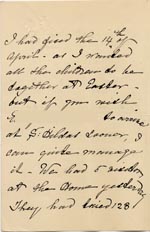 I had fixed the 14th of
April - as I wanted
all the children to be
together at Easter -
but if you wish
to come
at St Gildas sooner I
can quite manage
it - We had 5
at the Dome yesterday
They had tried 128